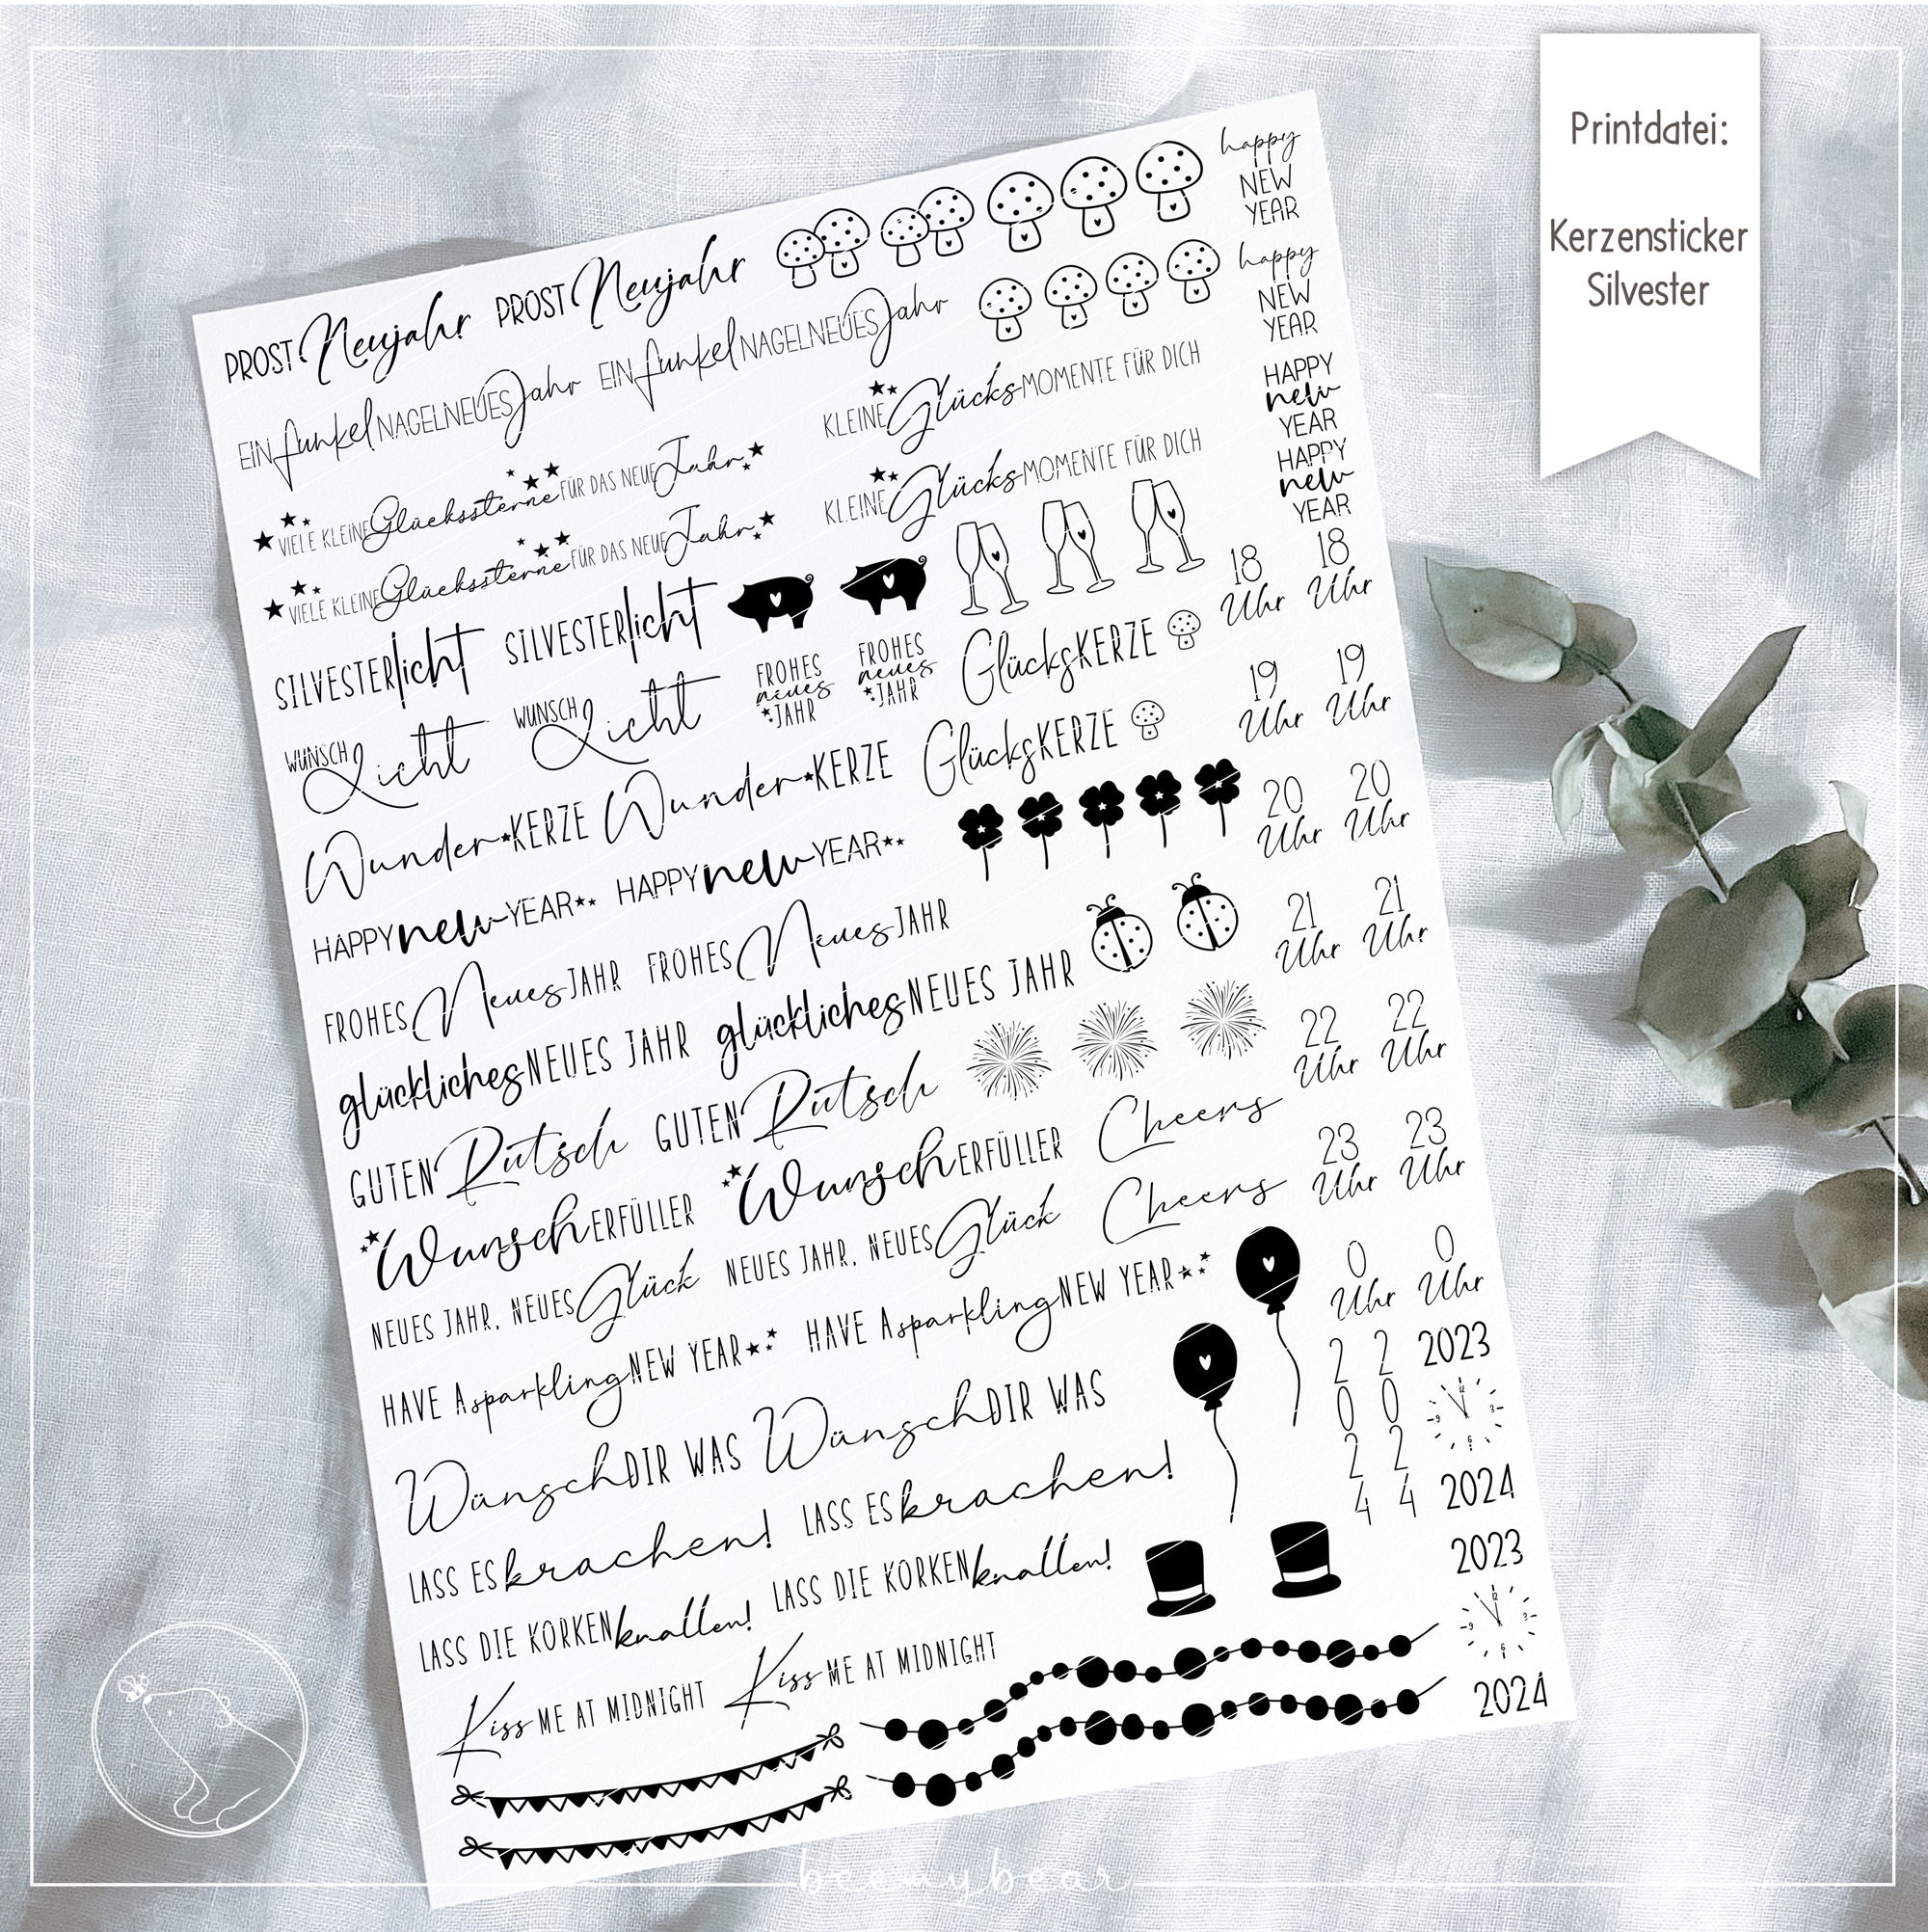 Printdatei:
Kerzensticker
Silvester
PROST Neujahr PROST Neujahr
happy
NEW
YEAR
EIN funkel NAGELNEUES Jahr EIN funkel NAGELNEUES Jahr
happy
NEW
YEAR
VIELE KLEINE Glückssterne FÜR DAS NEUE Jahr
KLEINE Glücks MOMENTE FÜR DICH
HAPPY
new
YEAR
VIELE KLEINE Glückssterne FÜR DAS NEUE Jahr
KLEINE Glücks MOMENTE FÜR DICH
HAPPY
new
YEAR
SILVESTERlicht SILVESTERlicht
18 18
Uhr Uhr
WUNSCH Licht WUNSCH Licht
FROHES
neues
JAHR
FROHES
neues
JAHR
GlücksKERZE
19 19
Uhr Uhr
Wunder KERZE Wunder KERZE
GlücksKERZE
20 20
Uhr Uhr
HAPPY new YEAR HAPPY new YEAR
FROHES Neues JAHR FROHES Neues JAHR
21 21
Uhr Uhr
glückliches NEUES JAHR glückliches NEUES JAHR
22 22
Uhr Uhr
GUTEN Rutsch GUTEN Rutsch
Wunsch ERFÜLLER Wunsch ERFÜLLER
Cheers
23 23
Uhr Uhr
NEUES JAHR, NEUES Glück NEUES JAHR, NEUES Glück
Cheers
0 0
Uhr Uhr
HAVE A sparkling NEW YEAR HAVE A sparkling NEW YEAR
2 2
0 0
2 2
4 4
2023
12
3
6
9
2024
Wünsch DIR WAS Wünsch DIR WAS
LASS ES krachen! LASS ES krachen!
LASS DIE KORKEN knallen! LASS DIE KORKEN knallen!
2023
12
3
6
9
2024
Kiss ME AT MIDNIGHT Kiss ME AT MIDNIGHT
beemybear